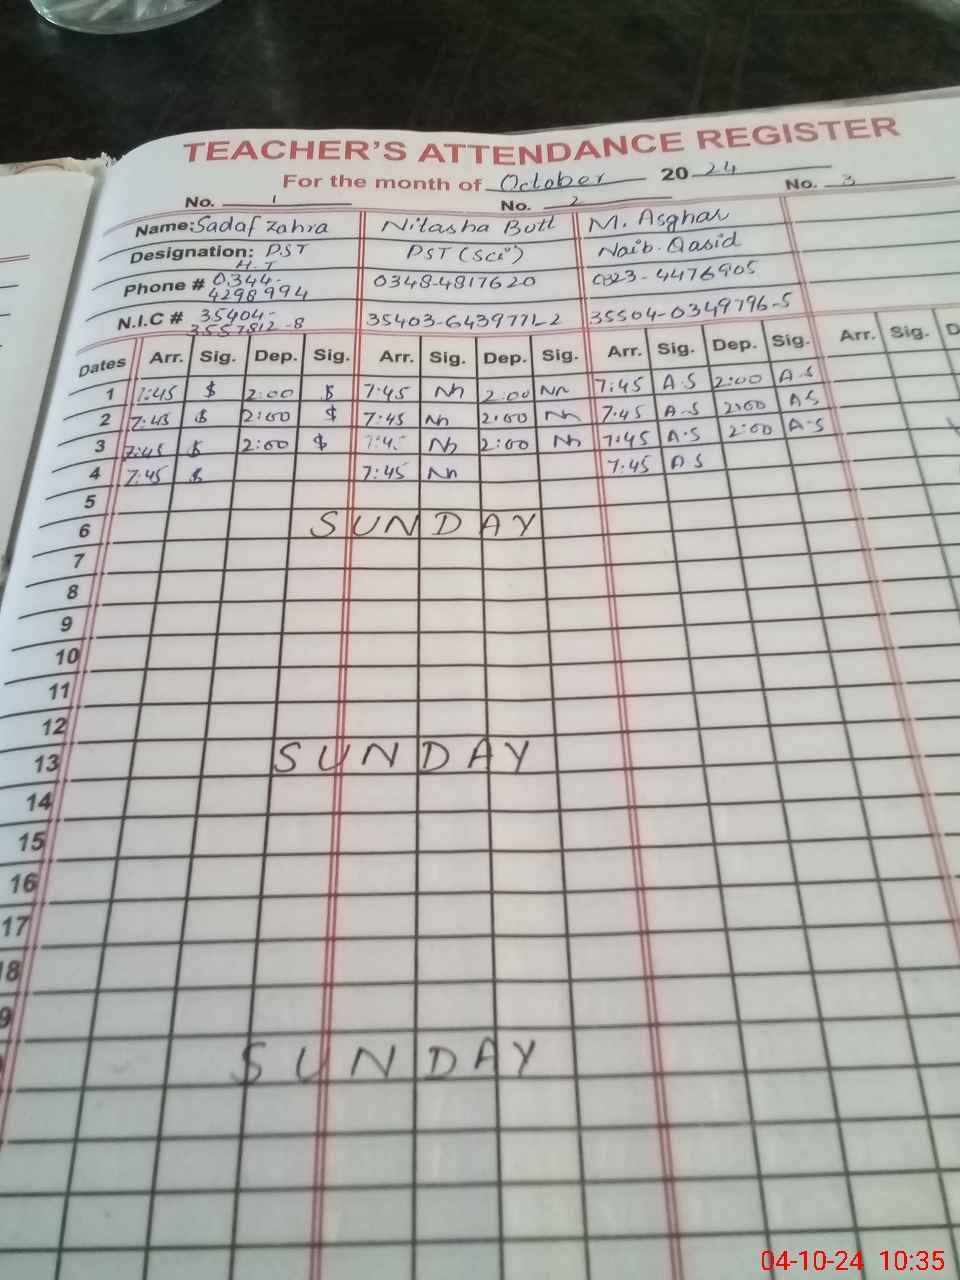 TEACHER'S ATTENDANCE REGISTER
For the month of October 2024
No. 1 No. 2 No. 3
Name: Sadaf Zahra Nitasha Butt M. Asghar
Designation: PST H.T PST (Sci) Naib. Qasid
Phone # 0344-4298994 0348-4817620 0323-4476905
N.I.C # 35404-3557812-8 35403-6439771-2 35504-0349796-5
Dates Arr. Sig. Dep. Sig. Arr. Sig. Dep. Sig. Arr. Sig. Dep. Sig. Arr. Sig. D
1 7:45 $ 2:00 $ 7:45 Nn 2:00 Nn 7:45 A.S 2:00 A.S
2 7:45 $ 2:00 $ 7:45 Nn 2:00 Nn 7:45 A.S 2:00 AS
3 7:45 $ 2:00 $ 7:45 Nn 2:00 Nn 7:45 A.S 2:00 A.S
4 7:45 $ 7:45 Nn 7:45 AS
5
6 SUNDAY
7
8
9
10
11
12
13 SUNDAY
14
15
16
17
18
9
SUNDAY
04-10-24 10:35